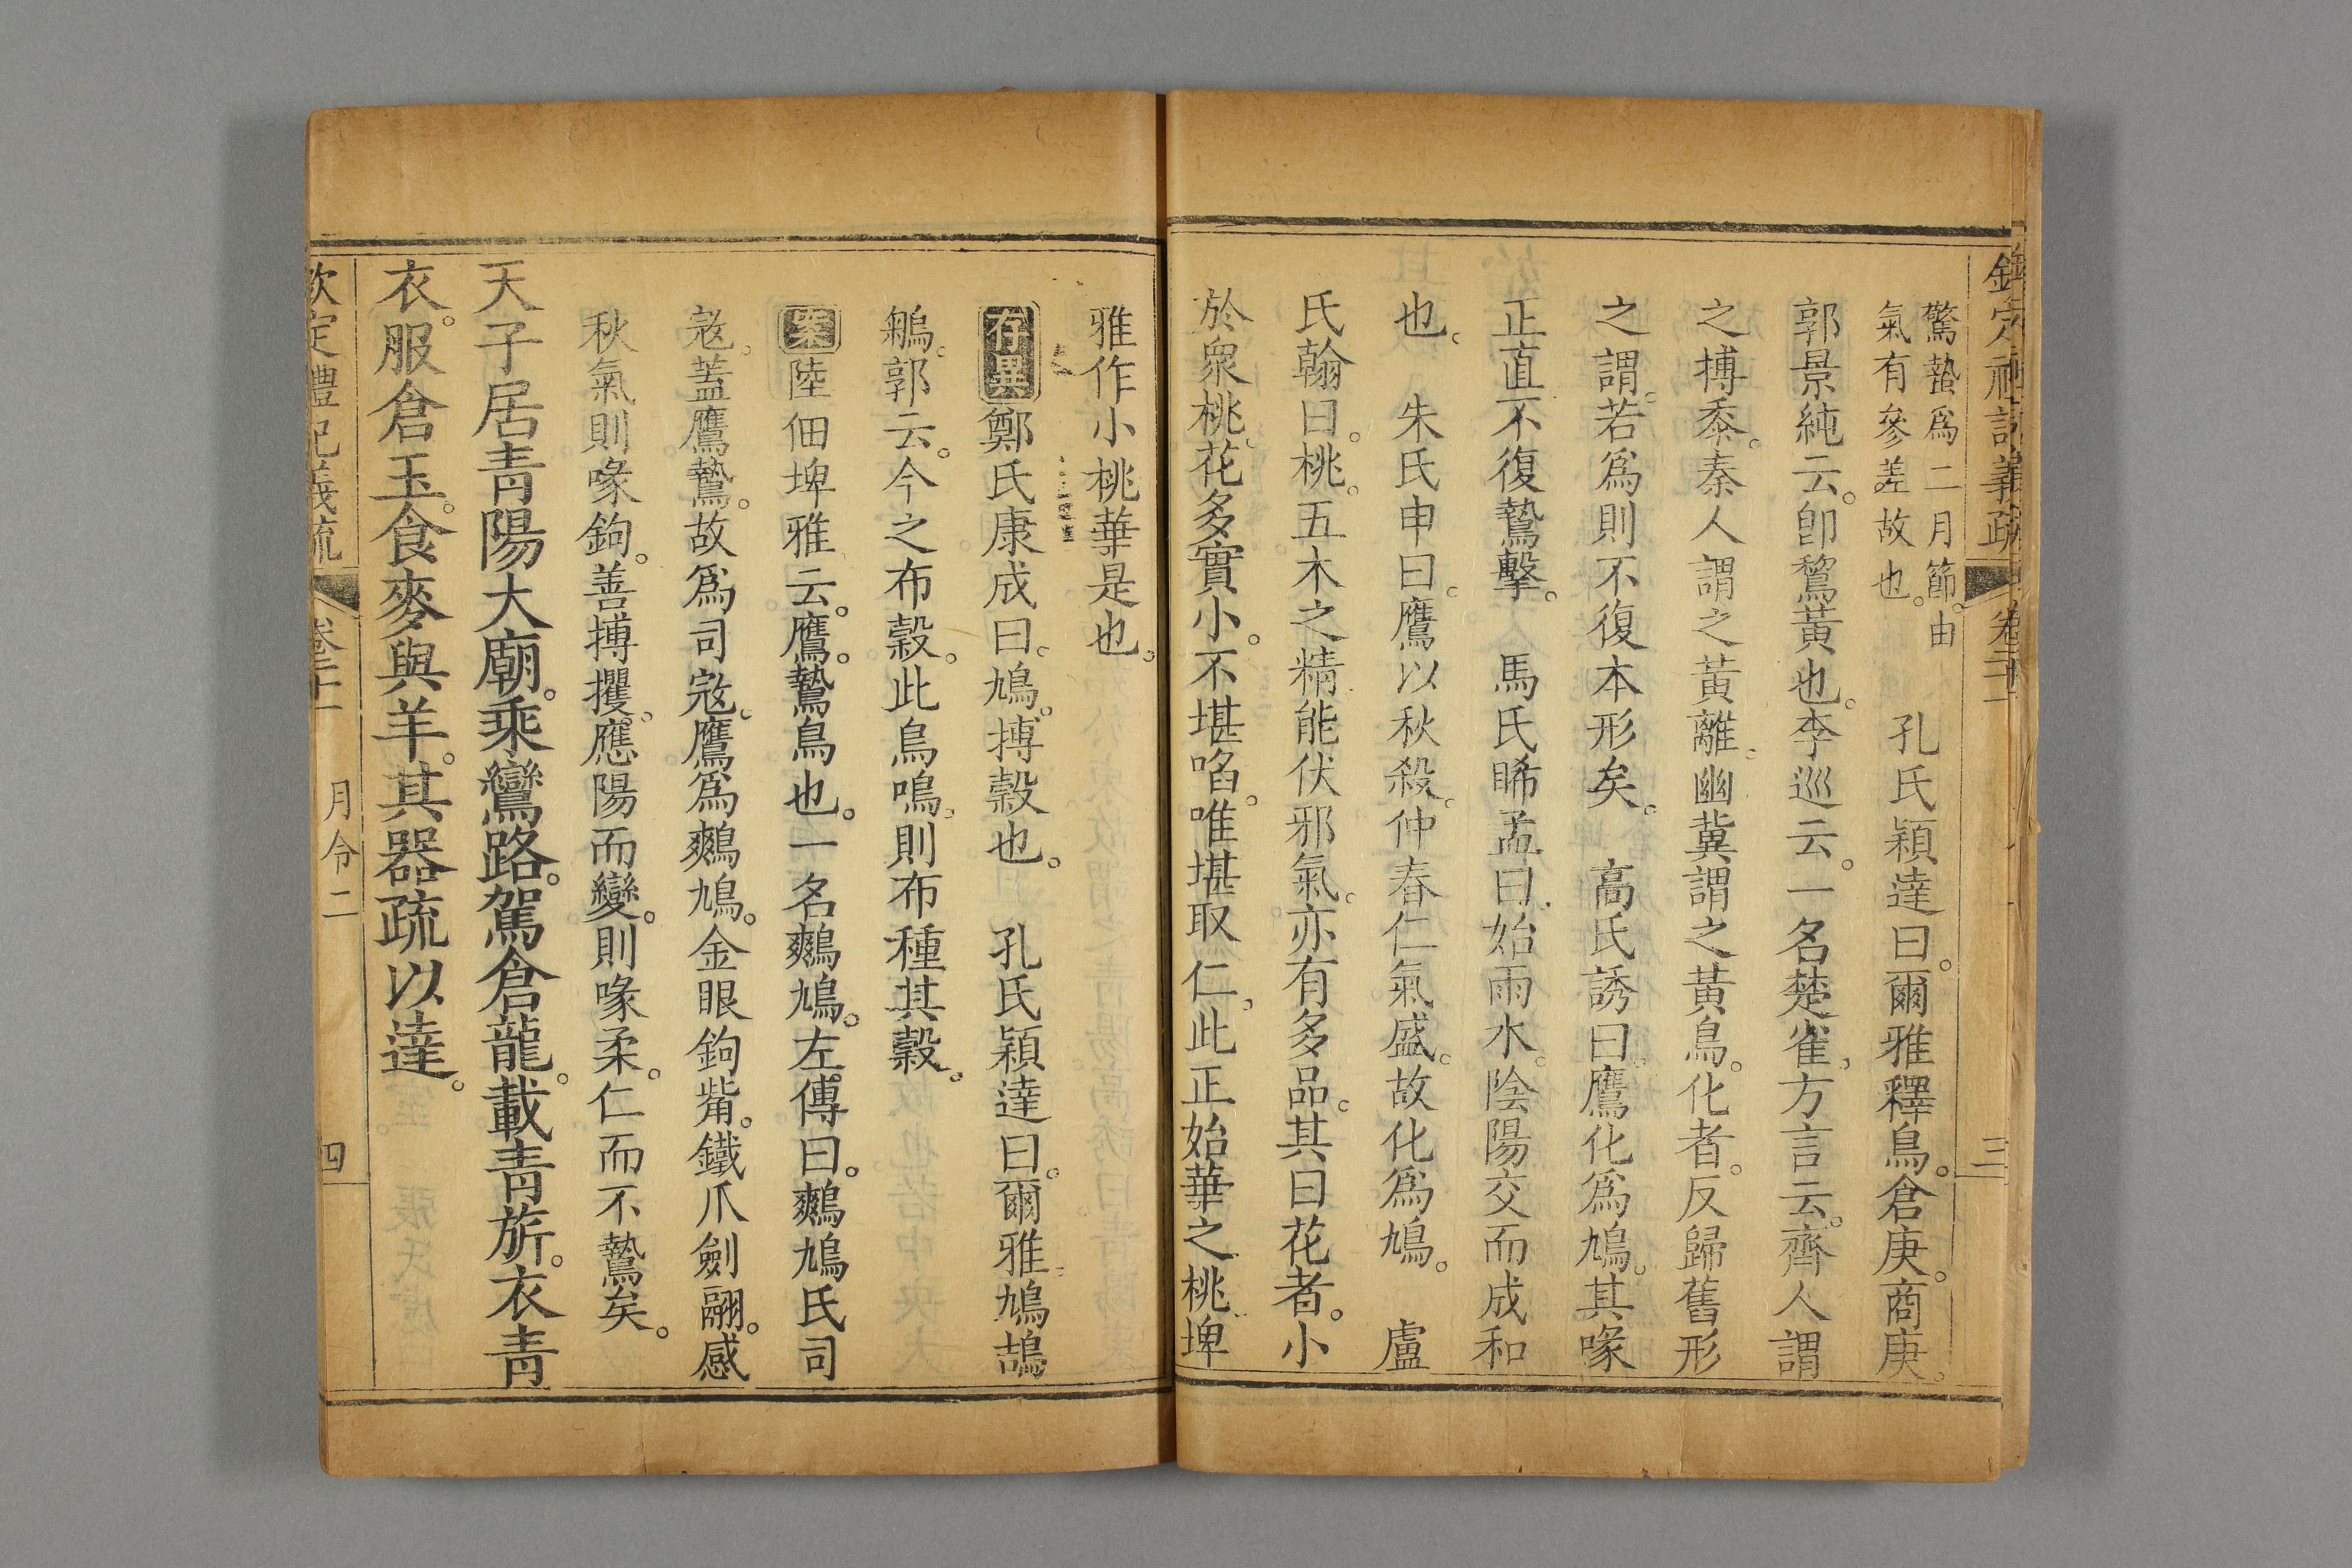 欽定禮記義疏 卷二十一 三
驚蟄爲二月節。由
氣有參差故也。
孔氏穎達曰。爾雅釋鳥。倉庚。商庚。
郭景純云。卽鵹黃也。李巡云。一名楚雀。方言云。齊人謂
之搏黍。秦人謂之黃離。幽冀謂之黃鳥。化者。反歸舊形
之謂。若爲則不復本形矣。 高氏誘曰。鷹化爲鳩。其喙
正直不復鷙擊。 馬氏睎孟曰。始雨水。陰陽交而成和
也。 朱氏申曰。鷹以秋殺。仲春仁氣盛。故化爲鳩。 盧
氏翰曰。桃。五木之精能伏邪氣。亦有多品。其曰花者。小
於衆桃。花多實小。不堪啗。唯堪取仁。此正始華之桃。埤
雅作小桃華是也。
存異 鄭氏康成曰。鳩。搏穀也。 孔氏穎達曰。爾雅。鳲鳩鴶
鵴。郭云。今之布穀。此鳥鳴。則布種其穀。
案 陸佃埤雅云。鷹。鷙鳥也。一名鷞鳩。左傳曰。鷞鳩氏司
寇。蓋鷹鷙。故爲司寇。鷹爲鷞鳩。金眼鉤觜。鐵爪劍翮。感
秋氣則喙鉤。善搏攫。應陽而變。則喙柔。仁而不鷙矣。
天子居靑陽大廟。乘鸞路。駕倉龍。載靑旂。衣靑
衣。服倉玉。食麥與羊。其器疏以達。
欽定禮記義疏 卷二十一 月令二 四